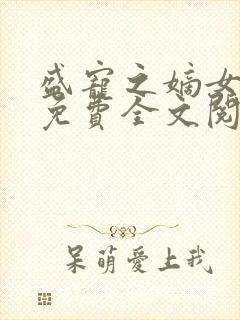 盛寵之嫡女
免費全文閱
呆萌愛上我